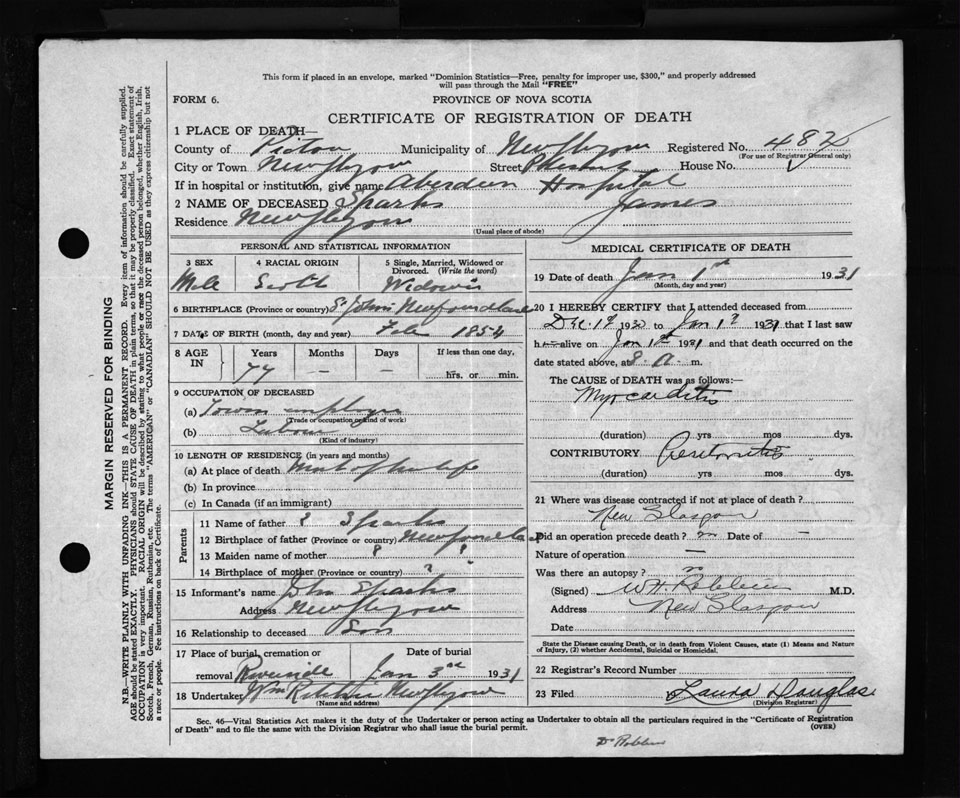 This form if placed in an envelope, marked "Dominion Statistics—Free, penalty for improper use, $300," and properly addressed
will pass through the Mail "FREE"
FORM 6.
PROVINCE OF NOVA SCOTIA
CERTIFICATE OF REGISTRATION OF DEATH
1 PLACE OF DEATH—
County of Pictou Municipality of New Glasgow Registered No. 487
(For use of Registrar General only)
City or Town New Glasgow Street House No.
If in hospital or institution, give name Aberdeen Hospital
2 NAME OF DECEASED Sparks James
Residence New Glasgow
(Usual place of abode)
PERSONAL AND STATISTICAL INFORMATION
3 SEX
Male
4 RACIAL ORIGIN
Scotch
5 Single, Married, Widowed or
Divorced. (Write the word)
6 BIRTHPLACE (Province or country) St Johns Newfoundland
7 DATE OF BIRTH (month, day and year) Feb 1854
8 AGE IN
Years
77
Months
—
Days
—
If less than one day,
hrs. or min.
9 OCCUPATION OF DECEASED
(a) Town employe
(Trade or occupation or kind of work)
(b) Labour
(Kind of industry)
10 LENGTH OF RESIDENCE (in years and months)
(a) At place of death most of his life
(b) In province
(c) In Canada (if an immigrant)
Parents
11 Name of father ? Sparks
12 Birthplace of father (Province or country) Newfoundland
13 Maiden name of mother ? ?
14 Birthplace of mother (Province or country) ?
15 Informant's name John Sparks
Address New Glasgow
16 Relationship to deceased Son
17 Place of burial, cremation or Date of burial
removal Riverside Jan 3rd 1931
18 Undertaker Wm New Glasgow
(Name and address)
MEDICAL CERTIFICATE OF DEATH
19 Date of death Jan 1st 1931
(Month, day and year)
20 I HEREBY CERTIFY that I attended deceased from
Dec 19 1930 to Jan 1st 1931 that I last saw
him alive on Jan 1st 1931 and that death occurred on the
date stated above, at 8. A. m.
The CAUSE of DEATH was as follows:
Myocarditis
(duration) yrs mos dys.
CONTRIBUTORY
(duration) yrs mos dys.
21 Where was disease contracted if not at place of death?
New Glasgow
Did an operation precede death? no Date of —
Nature of operation —
Was there an autopsy? no
(Signed) W H Robbins M.D.
Address New Glasgow
Date
State the Disease causing Death, or in death from Violent Causes, state (1) Means and Nature
of Injury, (2) whether Accidental, Suicidal or Homicidal.
22 Registrar's Record Number
23 Filed Laura Douglas
(Division Registrar)
Sec. 46—Vital Statistics Act makes it the duty of the Undertaker or person acting as Undertaker to obtain all the particulars required in the "Certificate of Registration
of Death" and to file the same with the Division Registrar who shall issue the burial permit. (OVER)
Dr Robbins
MARGIN RESERVED FOR BINDING
N.B.—WRITE PLAINLY WITH UNFADING INK—THIS IS A PERMANENT RECORD. Every item of information should be carefully supplied.
AGE should be stated EXACTLY. PHYSICIANS should STATE CAUSE OF DEATH in plain terms, so that it may be properly classified. Exact statement of
OCCUPATION is very important. RACIAL ORIGIN will be described by stating to what people or race the deceased person belonged, whether English, Irish,
Scotch, French, German, Russian, Ruthenian, etc. The terms "AMERICAN" or "CANADIAN" SHOULD NOT BE USED as they express citizenship but not
a race or people. See instructions on back of Certificate.